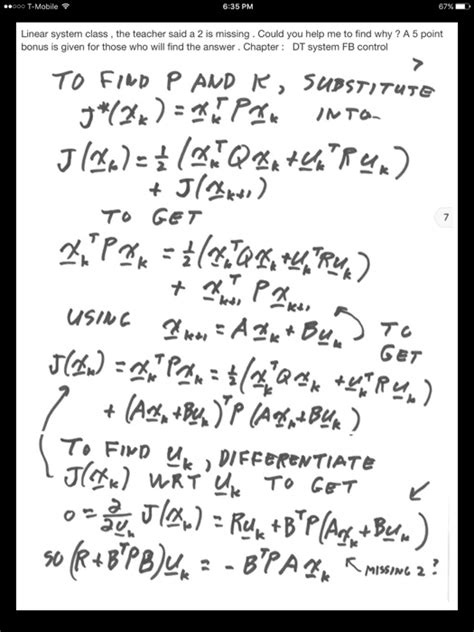 ●●○○○ T-Mobile 6:35 PM 67%
Linear system class , the teacher said a 2 is missing . Could you help me to find why ? A 5 point
bonus is given for those who will find the answer . Chapter : DT system FB control
>
TO FIND P AND K, SUBSTITUTE
J*(x_k) = x_k^T P x_k INTO
J(x_k) = 1/2 (x_k^T Q x_k + u_k^T R u_k)
+ J(x_{k+1})
TO GET
7
x_k^T P x_k = 1/2 (x_k^T Q x_k + u_k^T R u_k)
+ x_{k+1}^T P x_{k+1}
USING x_{k+1} = A x_k + B u_k TO
GET
J(x_k) = x_k^T P x_k = 1/2 (x_k^T Q x_k + u_k^T R u_k)
+ (A x_k + B u_k)^T P (A x_k + B u_k)
TO FIND u_k, DIFFERENTIATE
J(x_k) WRT u_k TO GET
0 = ∂/∂u_k J(x_k) = R u_k + B^T P (A x_k + B u_k)
SO (R + B^T P B) u_k = - B^T P A x_k MISSING 2?